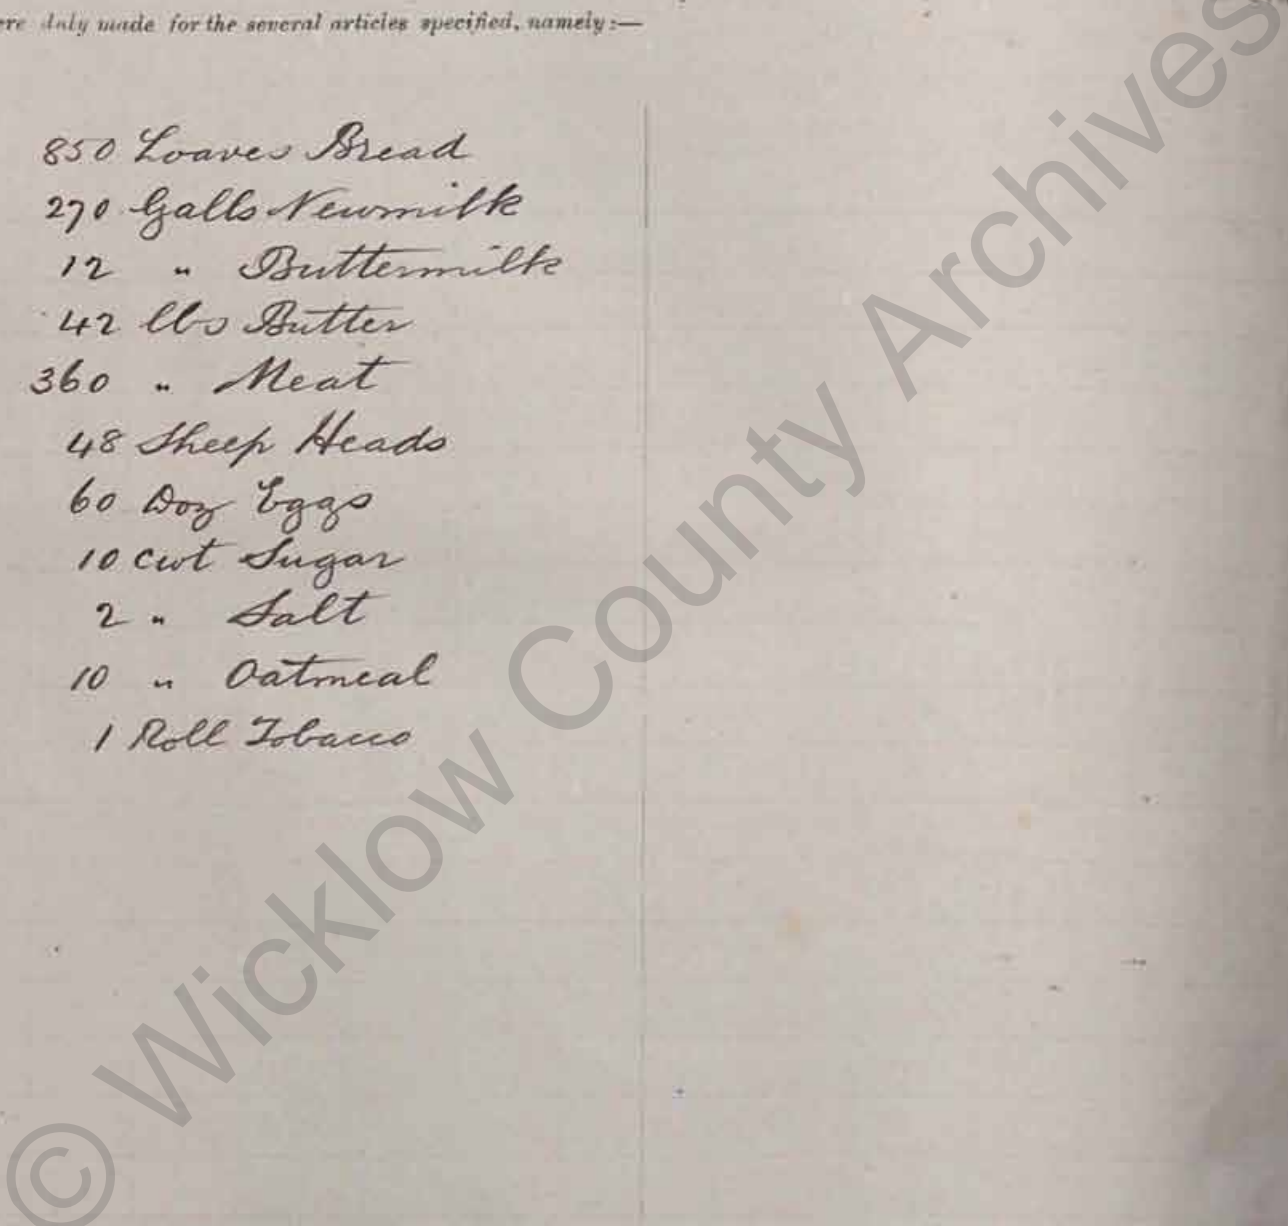 ere duly made for the several articles specified, namely:—
850 Loaves Bread
270 Galls Newmilk
12 " Buttermilk
42 lbs Butter
360 " Meat
48 Sheep Heads
60 Doz Eggs
10 cwt Sugar
2 " Salt
10 " Oatmeal
1 Roll Tobacco
© Wicklow County Archives